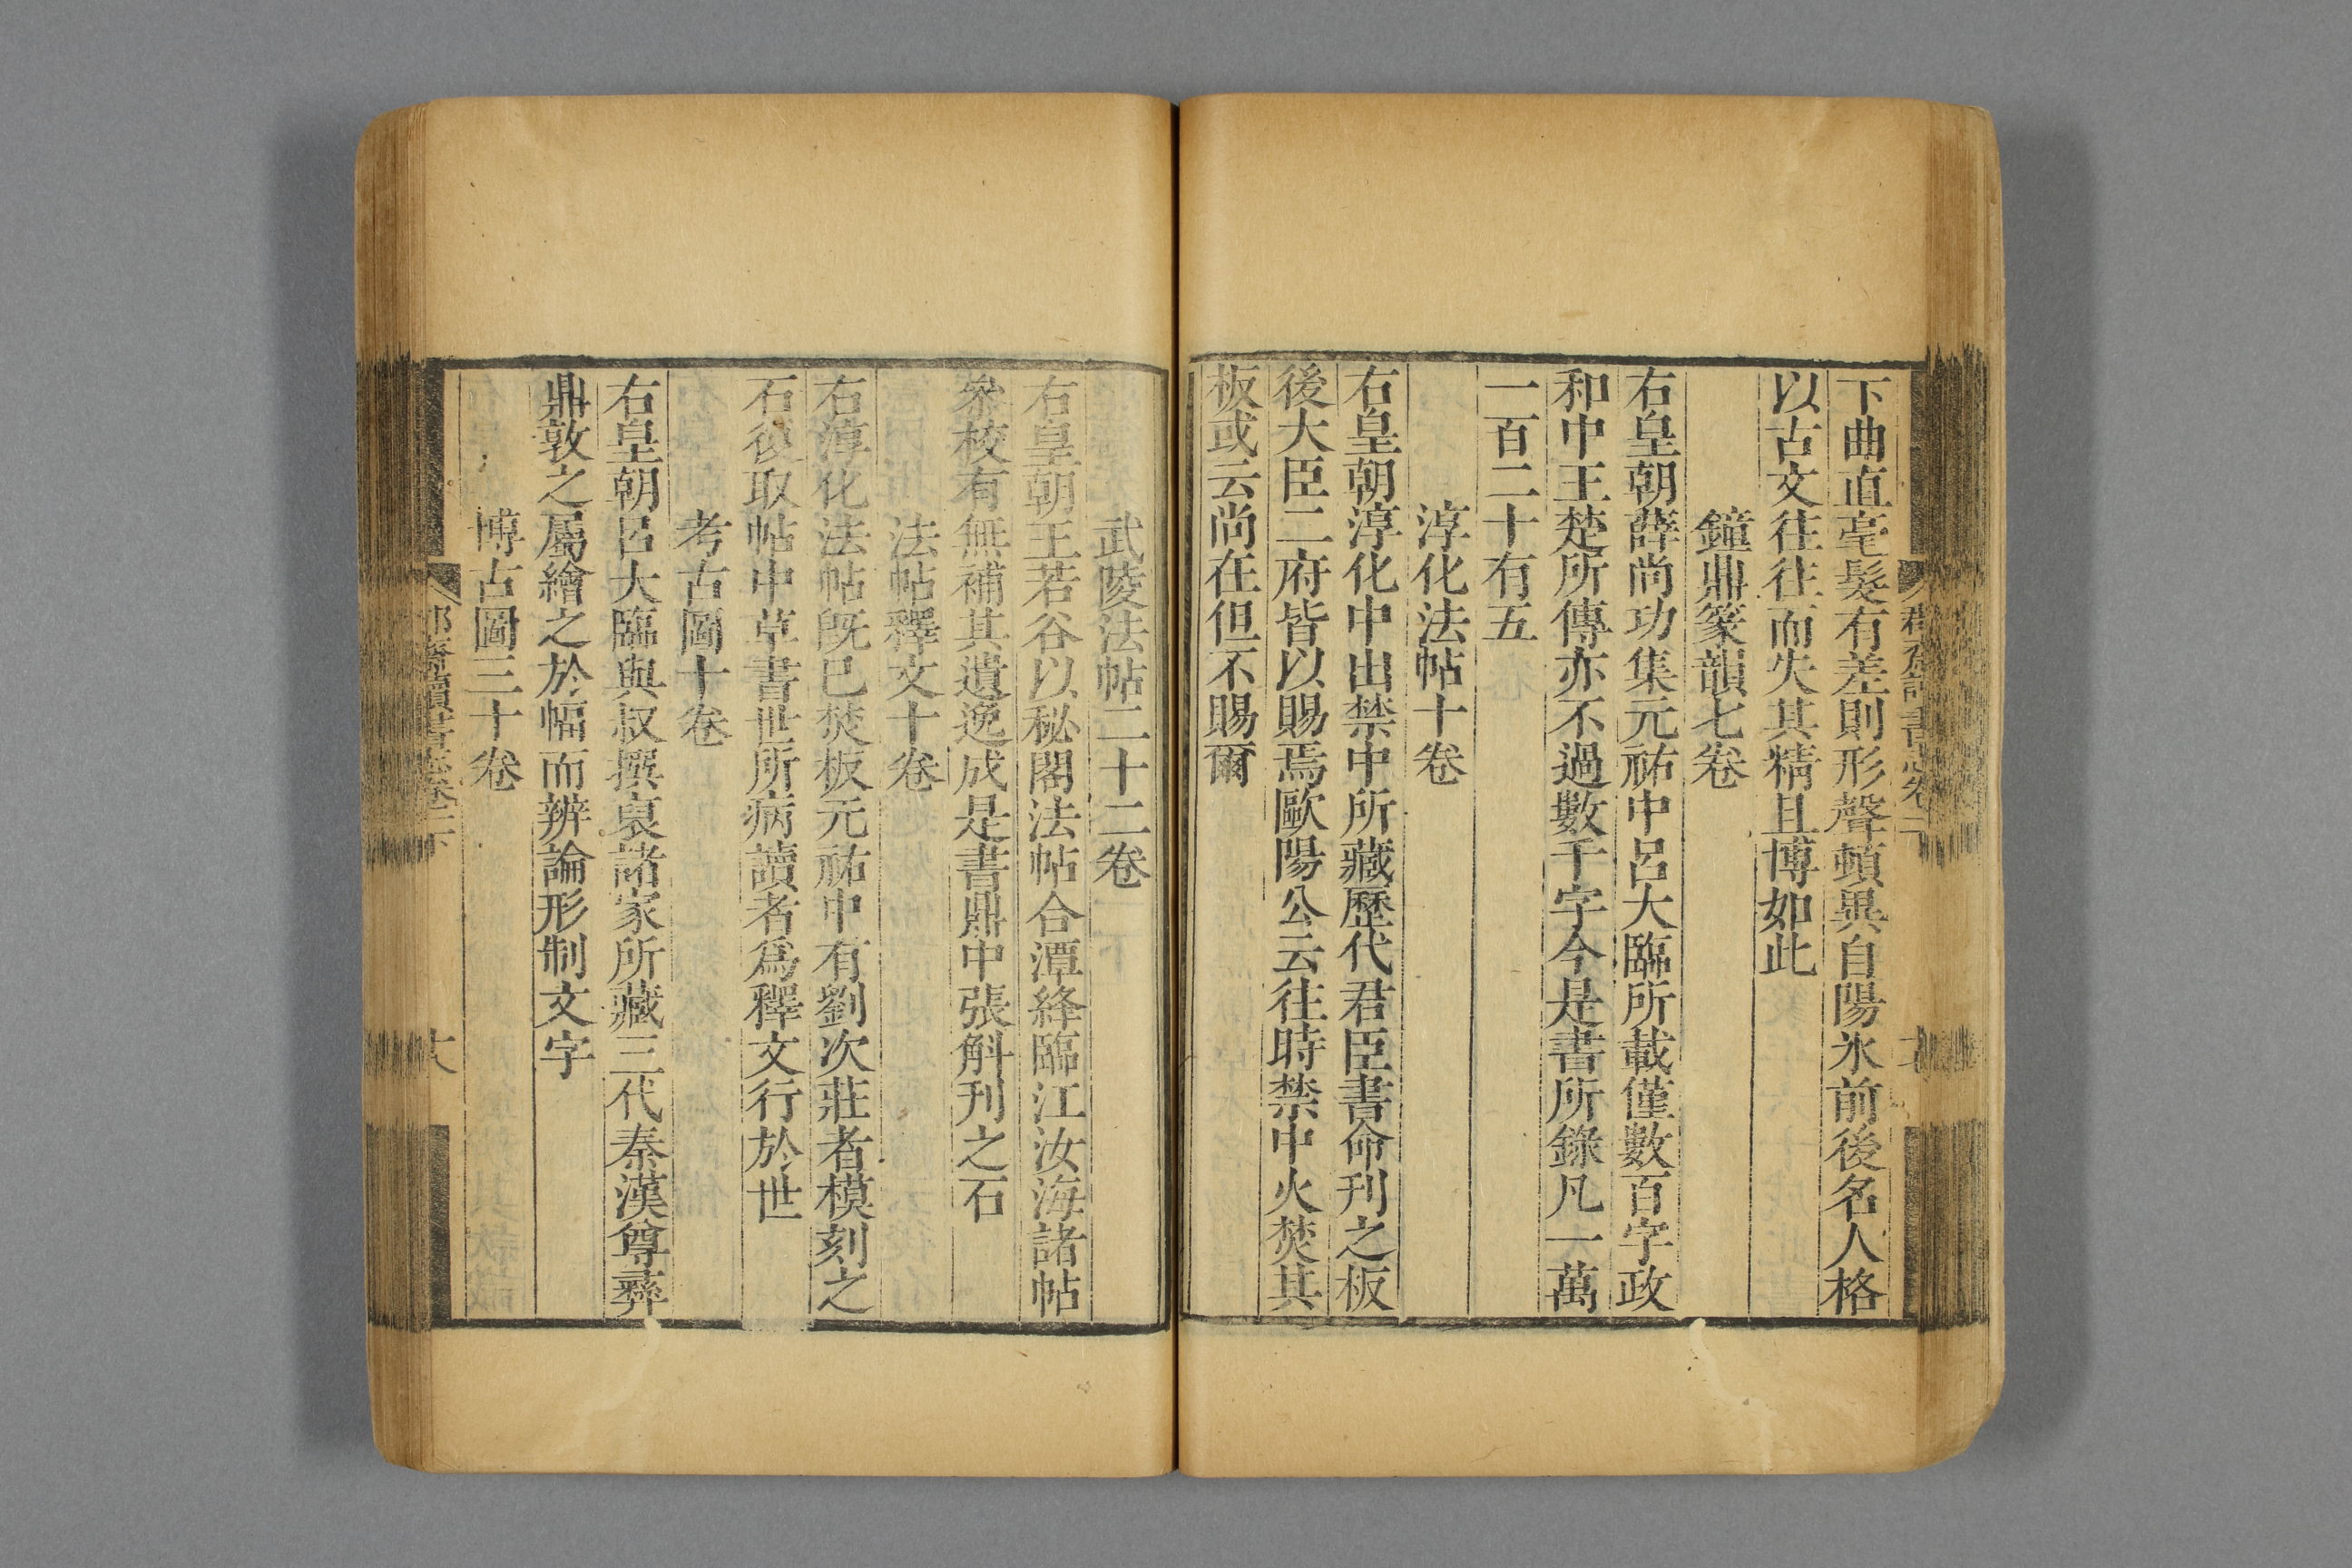 下曲直毫髮有差則形聲頓異自陽冰前後名人格
以古文往往而失其精且博如此
鐘鼎篆韻七卷
右皇朝薛尚功集元祐中呂大臨所載僅數百字政
和中王楚所傳亦不過數千字今是書所錄凡一萬
一百二十有五
淳化法帖十卷
右皇朝淳化中出禁中所藏歷代君臣書命刊之板
後大臣二府皆以賜焉歐陽公云往時禁中火焚其
板或云尚在但不賜爾
武陵法帖二十二卷
右皇朝王若谷以秘閣法帖合潭絳臨江汝海諸帖
叅校有無補其遺逸成是書鼎中張斛刊之石
法帖釋文十卷
右淳化法帖既已焚板元祐中有劉次莊者模刻之
石復取帖中草書世所病讀者為釋文行於世
考古圖十卷
右皇朝呂大臨與叔撰裒諸家所藏三代秦漢尊彞
鼎敦之屬繪之於幅而辨論形制文字
博古圖三十卷